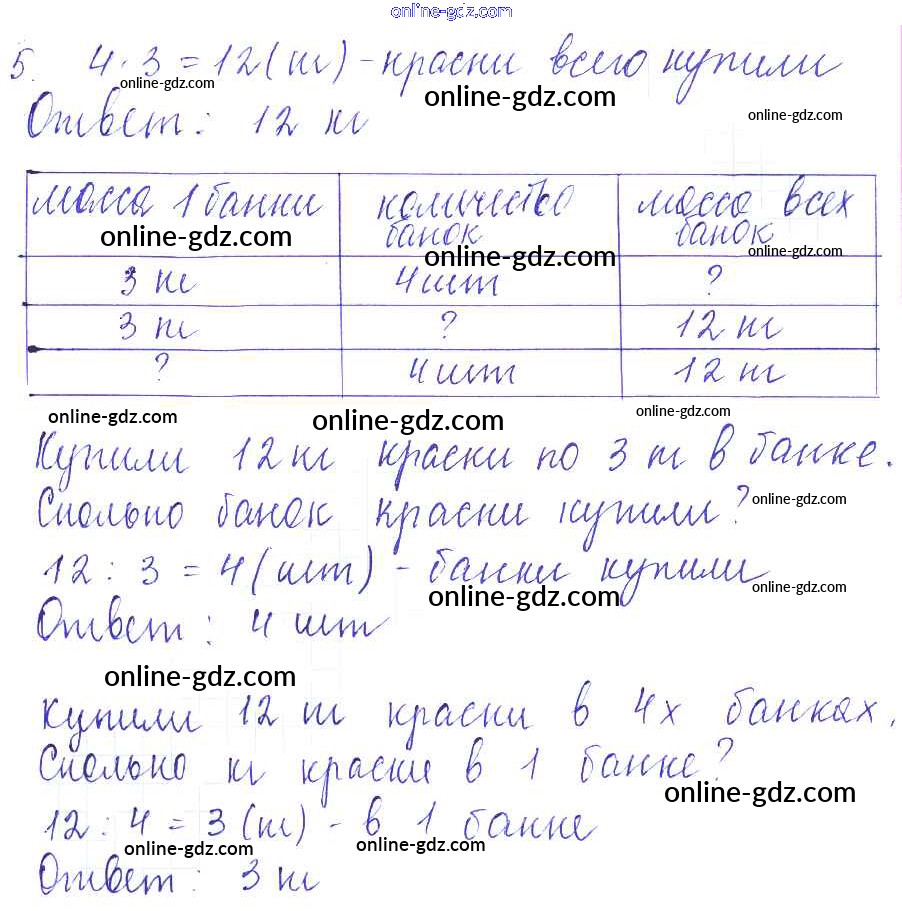 online-gdz.com
5. 4 · 3 = 12 (кг) - краски всего купили
online-gdz.com online-gdz.com
Ответ: 12 кг
online-gdz.com
масса 1 банки | количество банок | масса всех банок
online-gdz.com online-gdz.com online-gdz.com
3 кг | 4 шт | ?
3 кг | ? | 12 кг
? | 4 шт | 12 кг
online-gdz.com online-gdz.com online-gdz.com
Купили 12 кг краски по 3 кг в банке.
Сколько банок краски купили?
online-gdz.com
12 : 3 = 4 (шт) - банки купили
online-gdz.com online-gdz.com
Ответ: 4 шт
online-gdz.com
Купили 12 кг краски в 4х банках.
Сколько кг краски в 1 банке?
online-gdz.com
12 : 4 = 3 (кг) - в 1 банке
online-gdz.com online-gdz.com
Ответ: 3 кг